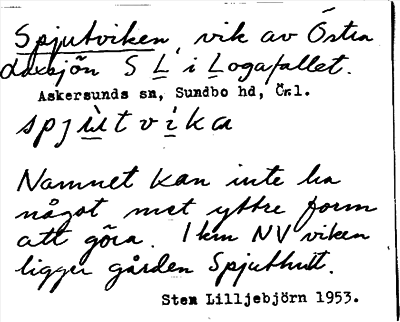 Spjutviken, vik av Östra
Laxsjön S L i Logafallet.
Askersunds sn, Sundbo hd, Örl.
spjutvika
Namnet kan inte ha
något met yttre form
att göra. 1 km NV viken
ligger gården Spjuthult.
Sten Lilljebjörn 1953.